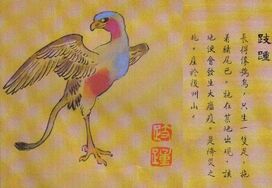 跂踵
長得像鴞鳥，只生一隻足，拖
著豬尾巴。牠在某地出現，該
地便會發生大瘟疫，是傳災之
兆，產於復州山。
跂
踵